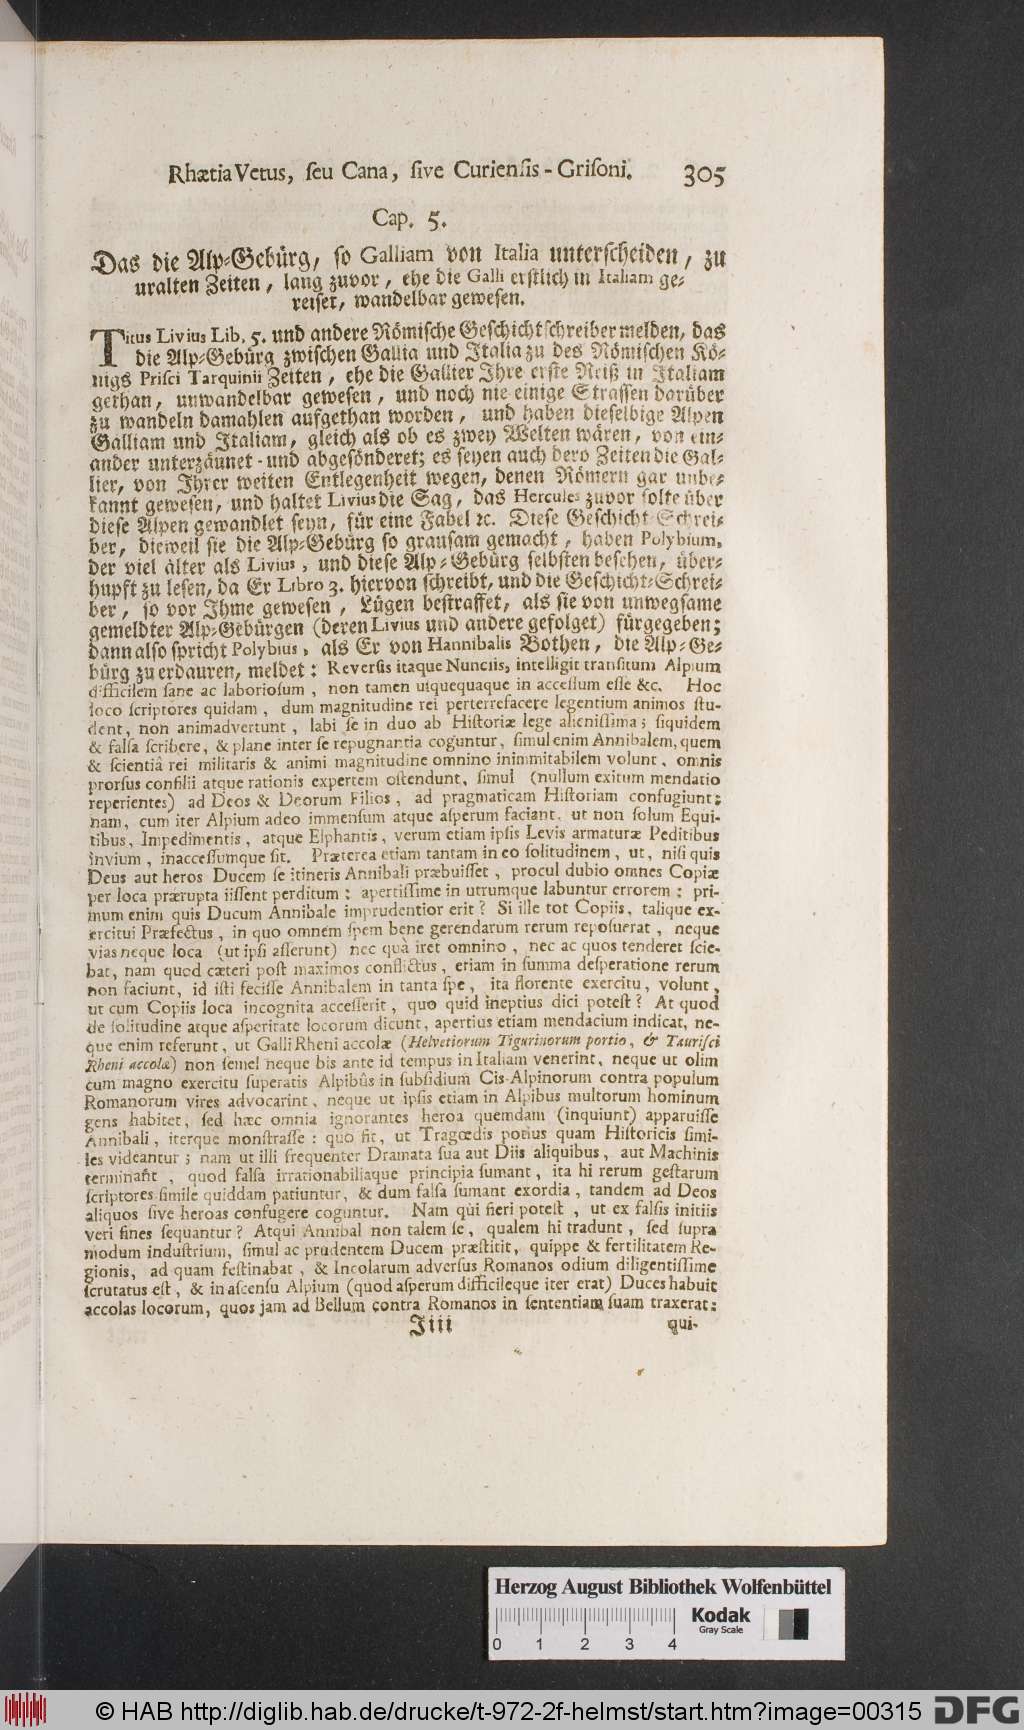 Rhætia Vetus, seu Cana, sive Curiensis-Grisoni. 305
Cap. 5.
Das die Alp-Gebürg, so Galliam von Italia unterscheiden, zu
uralten Zeiten, lang zuvor, ehe die Galli erstlich in Italiam ge-
reiset, wandelbar gewesen.
Titus Livius Lib. 5. und andere Römische Geschichtschreiber melden, das
die Alp-Gebürg zwischen Gallia und Italia zu des Römischen Kö-
nigs Prisci Tarquinii Zeiten, ehe die Gallier Ihre erste Reiß in Italiam
gethan, unwandelbar gewesen, und noch nie einige Strassen darüber
zu wandeln damahlen aufgethan worden, und haben dieselbige Alpen
Galliam und Italiam, gleich als ob es zwey Welten wären, von ein-
ander unterzäunet- und abgesönderet; es seyen auch dero Zeiten die Gal-
lier, von Ihrer weiten Entlegenheit wegen, denen Römern gar unbe-
kannt gewesen, und haltet Livius die Sag, das Hercules zuvor solte über
diese Alpen gewandlet seyn, für eine Fabel ꝛc. Diese Geschicht-Schrei-
ber, dieweil sie die Alp-Gebürg so grausam gemacht, haben Polybium,
der viel älter als Livius, und diese Alp-Gebürg selbsten besehen, über-
hupft zu lesen, da Er Libro 3. hiervon schreibt, und die Geschicht-Schrei-
ber, so vor Ihme gewesen, Lügen bestraffet, als sie von unwegsame
gemeldter Alp-Gebürgen (deren Livius und andere gefolget) fürgegeben;
dann also spricht Polybius, als Er von Hannibalis Bothen, die Alp-Ge-
bürg zu erdauren, meldet: Reversis itaque Nunciis, intelligit transitum Alpium
difficilem sane ac laboriosum, non tamen usquequaque in accessum esse &c. Hoc
loco scriptores quidam, dum magnitudine rei perterrefacere legentium animos stu-
dent, non animadvertunt, labi se in duo ab Historiæ lege alienissima; siquidem
& falsa scribere, & plane inter se repugnantia coguntur, simul enim Annibalem, quem
& scientiâ rei militaris & animi magnitudine omnino inimmitabilem volunt, omnis
prorsus consilii atque rationis expertem ostendunt, simul (nullum exitum mendatio
reperientes) ad Deos & Deorum Filios, ad pragmaticam Historiam confugiunt;
nam, cum iter Alpium adeo immensum atque asperum faciant, ut non solum Equi-
tibus, Impedimentis, atque Elphantis, verum etiam ipsis Levis armaturæ Peditibus
invium, inaccessumque sit. Præterea etiam tantam in eo solitudinem, ut, nisi quis
Deus aut heros Ducem se itineris Annibali præbuisset, procul dubio omnes Copiæ
per loca prærupta iissent perditum: apertissime in utrumque labuntur errorem: pri-
mum enim quis Ducum Annibale imprudentior erit? Si ille tot Copiis, talique ex-
ercitui Præfectus, in quo omnem spem bene gerendarum rerum reposuerat, neque
vias neque loca (ut ipsi asserunt) nec quà iret omnino, nec ac quos tenderet scie-
bat, nam quod cæteri post maximos conflictus, etiam in summa desperatione rerum
non faciunt, id isti fecisse Annibalem in tanta spe, ita florente exercitu, volunt,
ut cum Copiis loca incognita accesserit, quo quid ineptius dici potest? At quod
de solitudine atque asperitate locorum dicunt, apertius etiam mendacium indicat, ne-
que enim referunt, ut Galli Rheni accolæ (Helvetiorum Tigurinorum portio, & Taurisci
Rheni accolæ) non semel neque bis ante id tempus in Italiam venerint, neque ut olim
cum magno exercitu superatis Alpibûs in subsidium Cis-Alpinorum contra populum
Romanorum vires advocarint, neque ut ipsis etiam in Alpibus multorum hominum
gens habitet, sed hæc omnia ignorantes heroa quemdam (inquiunt) apparuisse
Annibali, iterque monstrasse: quo fit, ut Tragœdis potius quam Historicis simi-
les videantur; nam ut illi frequenter Dramata sua aut Diis aliquibus, aut Machinis
terminant, quod falsa irrationabiliaque principia sumant, ita hi rerum gestarum
scriptores simile quiddam patiuntur, & dum falsa sumant exordia, tandem ad Deos
aliquos sive heroas confugere coguntur. Nam qùi fieri potest, ut ex falsis initiis
veri fines sequantur? Atqui Annibal non talem se, qualem hi tradunt, sed supra
modum industrium, simul ac prudentem Ducem præstitit, quippe & fertilitatem Re-
gionis, ad quam festinabat, & Incolarum adversus Romanos odium diligentissime
scrutatus est, & in ascensu Alpium (quod asperum difficileque iter erat) Duces habuit
accolas locorum, quos jam ad Bellum contra Romanos in sententiam suam traxerat:
Jiii qui-
Herzog August Bibliothek Wolfenbüttel
Kodak
Gray Scale
0 1 2 3 4
© HAB http://diglib.hab.de/drucke/t-972-2f-helmst/start.htm?image=00315 DFG